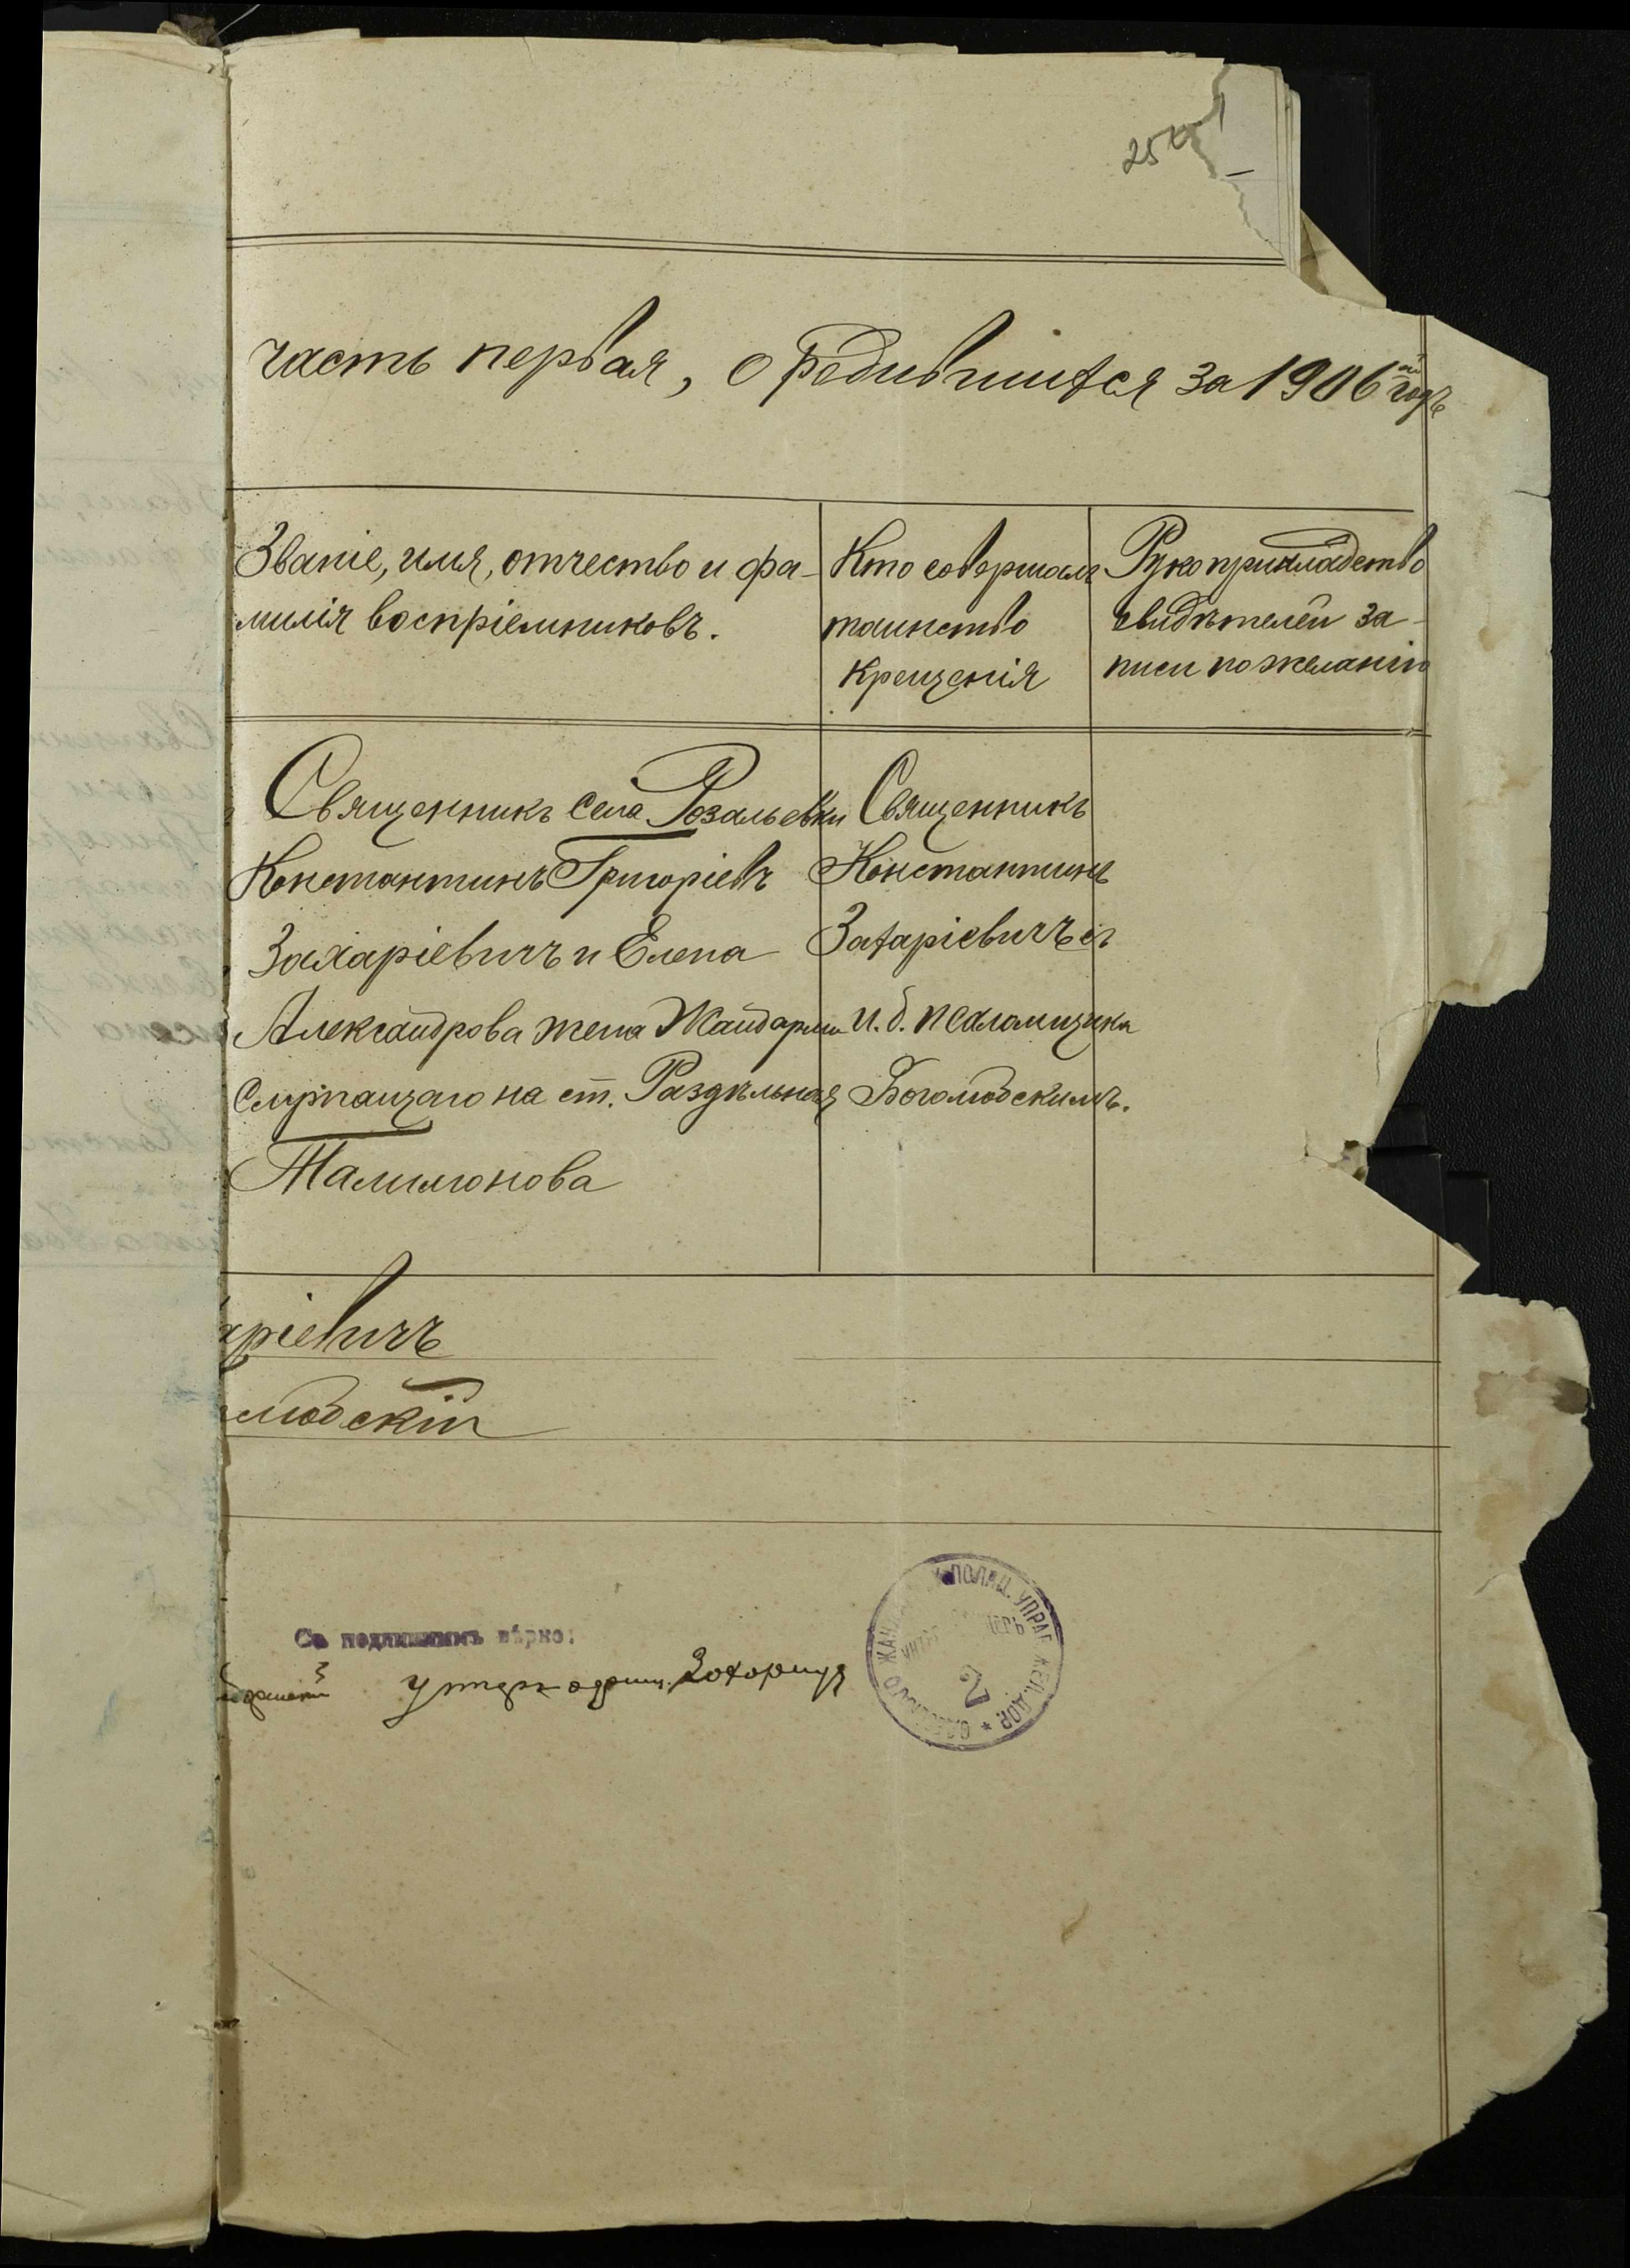 часть первая, о родившихся за 1906ой годъ
Званіе, имя, отчество и фа-
милія воспріемниковъ.
Кто совершалъ
таинство
крещенія
Рукоприкладство
свидѣтелей за-
писи по желанію
Священникъ села Розальевки
Константинъ Григоріевъ
Захаріевичъ и Елена
Александрова жена Жандарма
служащаго на ст. Раздѣльная
Талимонова
Священникъ
Константинъ
Захаріевичъ съ
и. д. псаломщика
Боголюбскимъ.
аріевичъ
любскій
Съ подлиннымъ вѣрно:
ПОЛИЦ. УПРАВ. ЖЕЛ. ДОР. * ОДЕССКАГО ЖАН
2